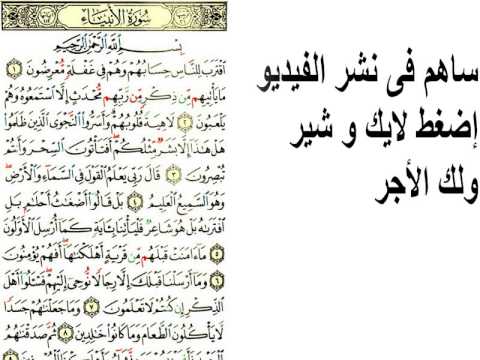 سُورَةُ الأَنبِيَاءِ
بِسْمِ اللَّهِ الرَّحْمَٰنِ الرَّحِيمِ
اَقْتَرَبَ لِلنَّاسِ حِسَابُهُمْ وَهُمْ فِي غَفْلَةٍ مُّعْرِضُونَ ١
مَا يَأْتِيهِم مِّن ذِكْرٍ مِّن رَّبِّهِم مُّحْدَثٍ إِلَّا اسْتَمَعُوهُ وَهُمْ
يَلْعَبُونَ ٢ لَاهِيَةً قُلُوبُهُمْ وَأَسَرُّوا النَّجْوَى الَّذِينَ ظَلَمُوا
هَلْ هَٰذَا إِلَّا بَشَرٌ مِّثْلُكُمْ أَفَتَأْتُونَ السِّحْرَ وَأَنتُمْ
تُبْصِرُونَ ٣ قَالَ رَبِّي يَعْلَمُ الْقَوْلَ فِي السَّمَاءِ وَالْأَرْضِ
وَهُوَ السَّمِيعُ الْعَلِيمُ ٤ بَلْ قَالُوا أَضْغَاثُ أَحْلَامٍ بَلِ
افْتَرَاهُ بَلْ هُوَ شَاعِرٌ فَلْيَأْتِنَا بِآيَةٍ كَمَا أُرْسِلَ الْأَوَّلُونَ
٥ مَا آمَنَتْ قَبْلَهُم مِّن قَرْيَةٍ أَهْلَكْنَاهَا أَفَهُمْ يُؤْمِنُونَ
٦ وَمَا أَرْسَلْنَا قَبْلَكَ إِلَّا رِجَالًا نُّوحِي إِلَيْهِمْ فَسْـَٔلُوا أَهْلَ
الذِّكْرِ إِن كُنتُمْ لَا تَعْلَمُونَ ٧ وَمَا جَعَلْنَاهُمْ جَسَدًا
لَّا يَأْكُلُونَ الطَّعَامَ وَمَا كَانُوا خَالِدِينَ ٨ ثُمَّ صَدَقْنَاهُمُ
ساهم فى نشر الفيديو
إضغط لايك و شير
ولك الأجر